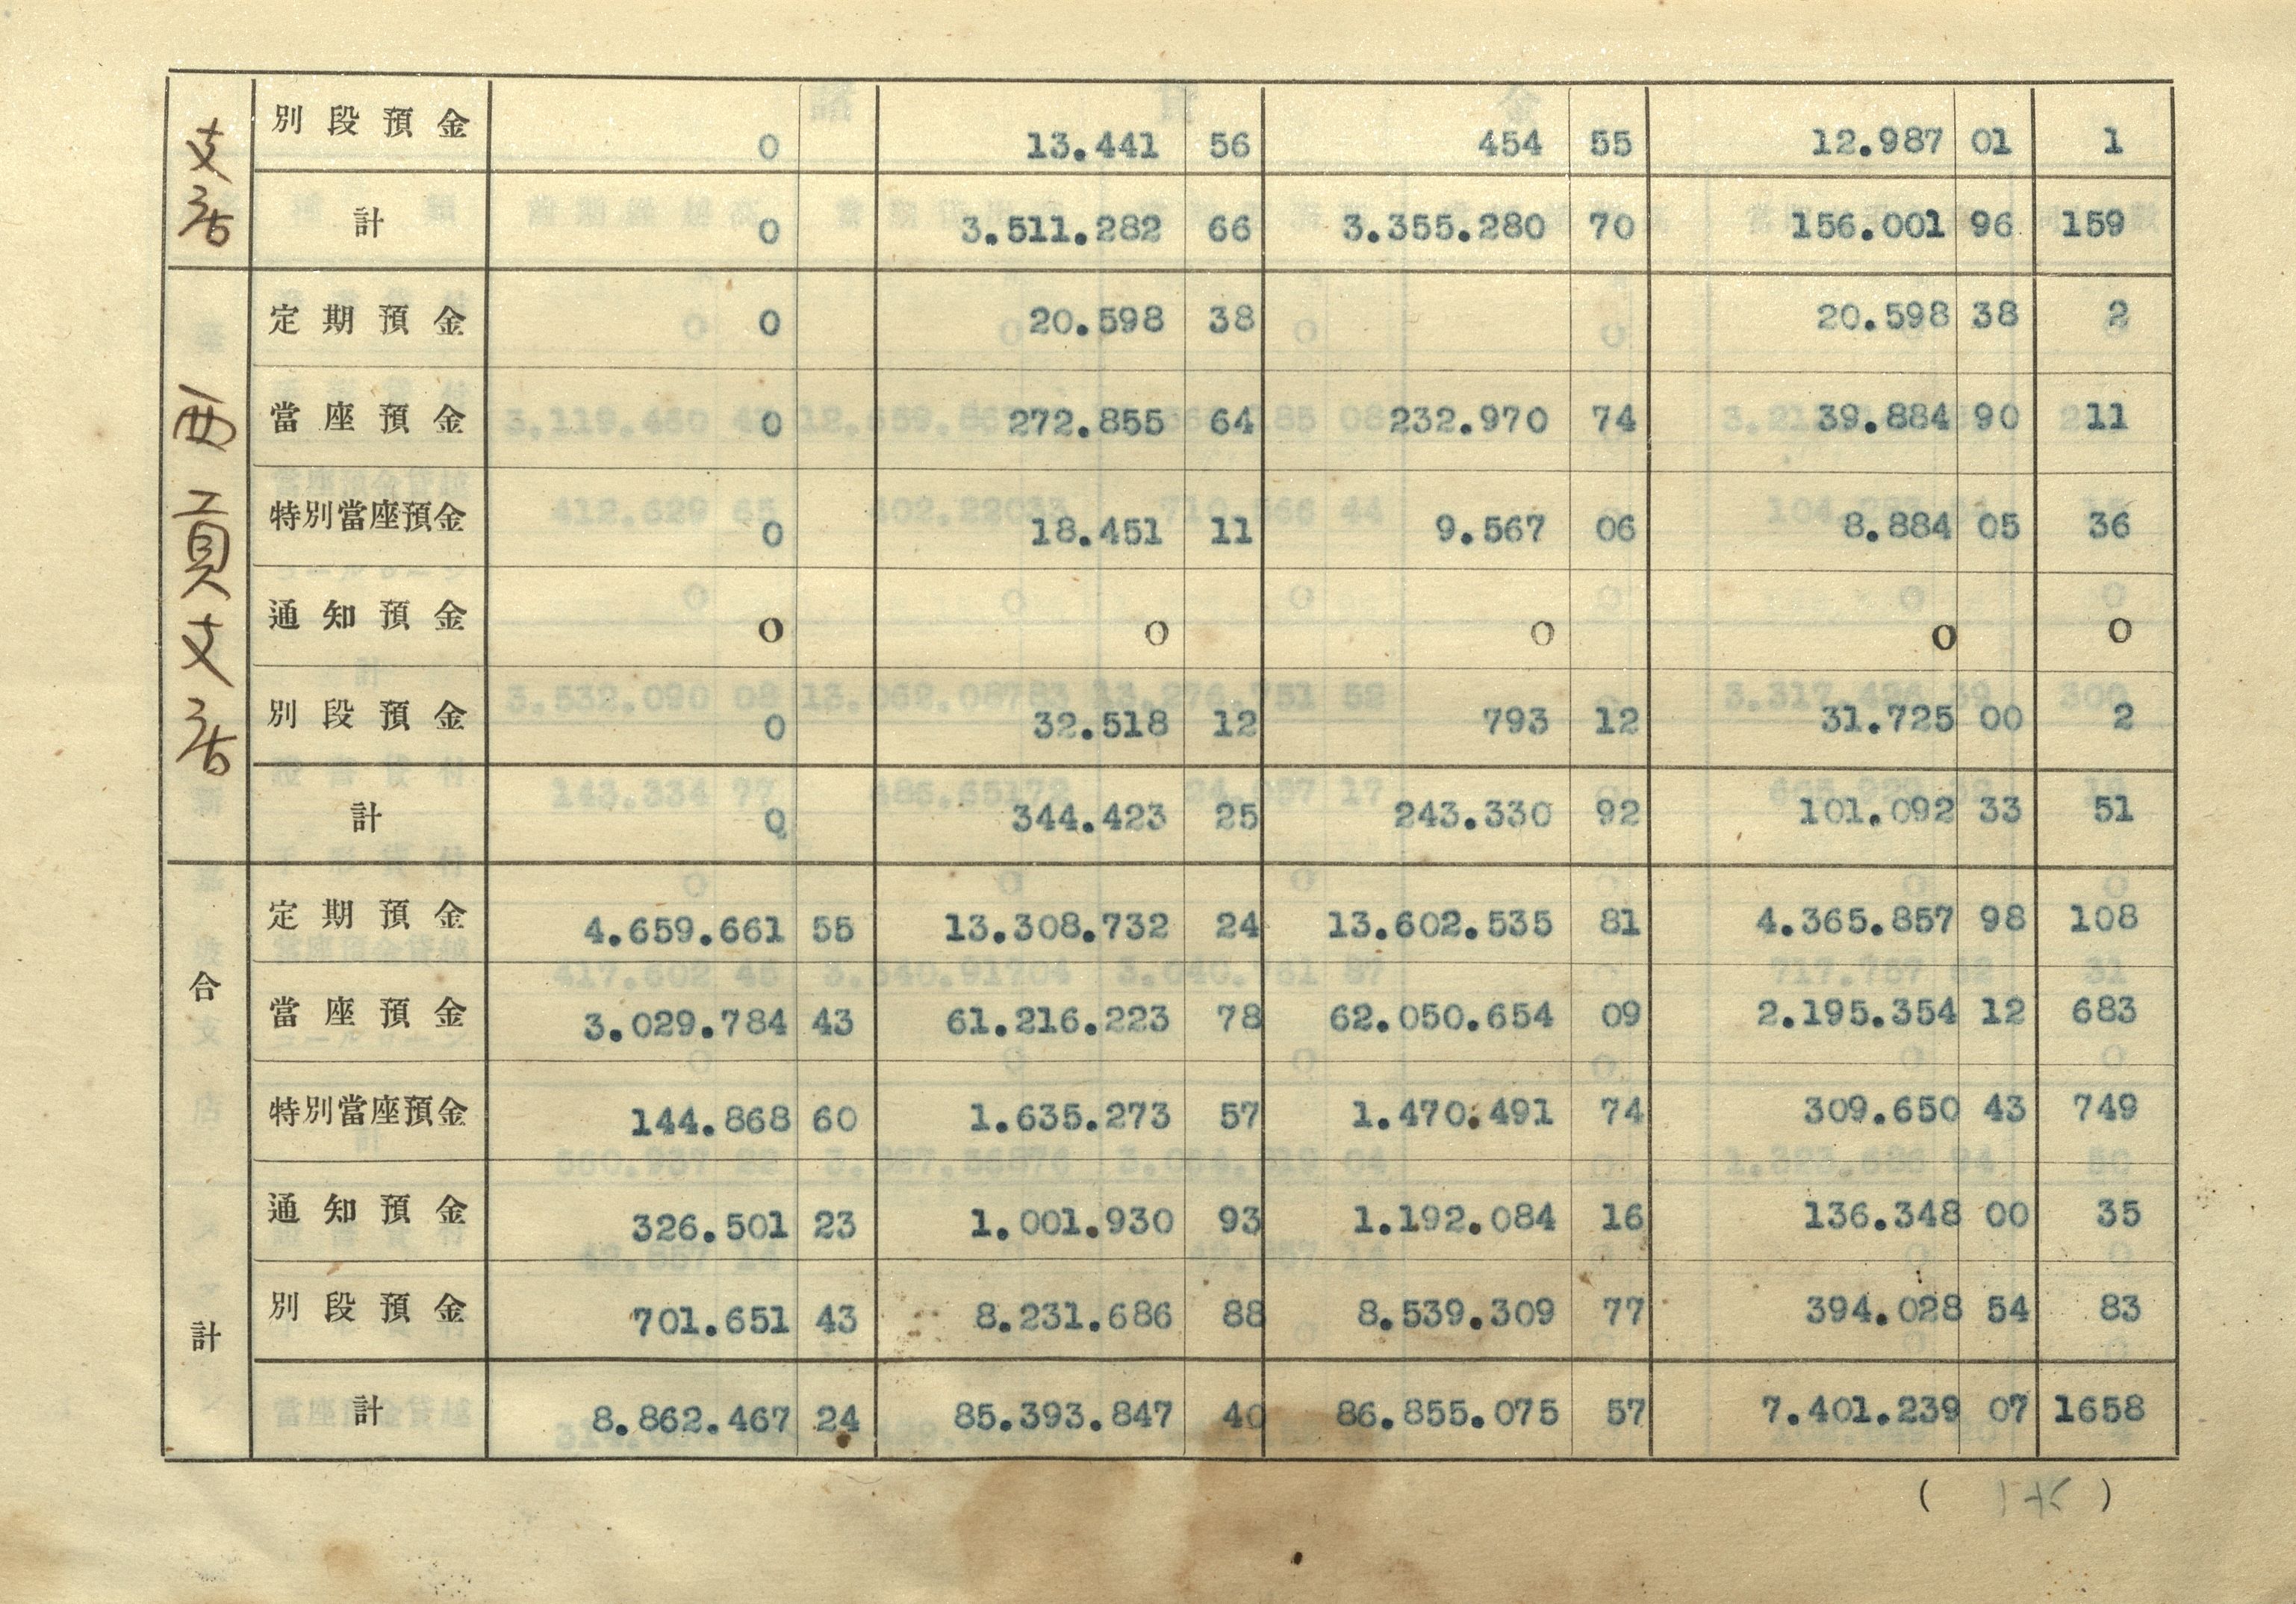 支店
別段預金 0 13.441 56 454 55 12.987 01 1
計 0 3.511.282 66 3.355.280 70 156.001 96 159
西貢支店
定期預金 0 20.598 38 20.598 38 2
當座預金 0 272.855 64 232.970 74 39.884 90 11
特別當座預金 0 18.451 11 9.567 06 8.884 05 36
通知預金 0 0 0 0 0
別段預金 0 32.518 12 793 12 31.725 00 2
計 0 344.423 25 243.330 92 101.092 33 51
合計
定期預金 4.659.661 55 13.308.732 24 13.602.535 81 4.365.857 98 108
當座預金 3.029.784 43 61.216.223 78 62.050.654 09 2.195.354 12 683
特別當座預金 144.868 60 1.635.273 57 1.470.491 74 309.650 43 749
通知預金 326.501 23 1.001.930 93 1.192.084 16 136.348 00 35
別段預金 701.651 43 8.231.686 88 8.539.309 77 394.028 54 83
計 8.862.467 24 85.393.847 40 86.855.075 57 7.401.239 07 1658